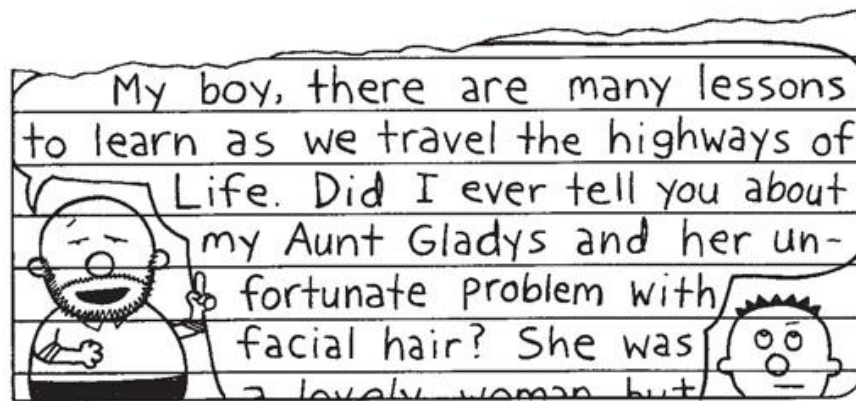 My boy, there are many lessons
to learn as we travel the highways of
Life. Did I ever tell you about
my Aunt Gladys and her un-
fortunate problem with
facial hair? She was
a lovely woman but